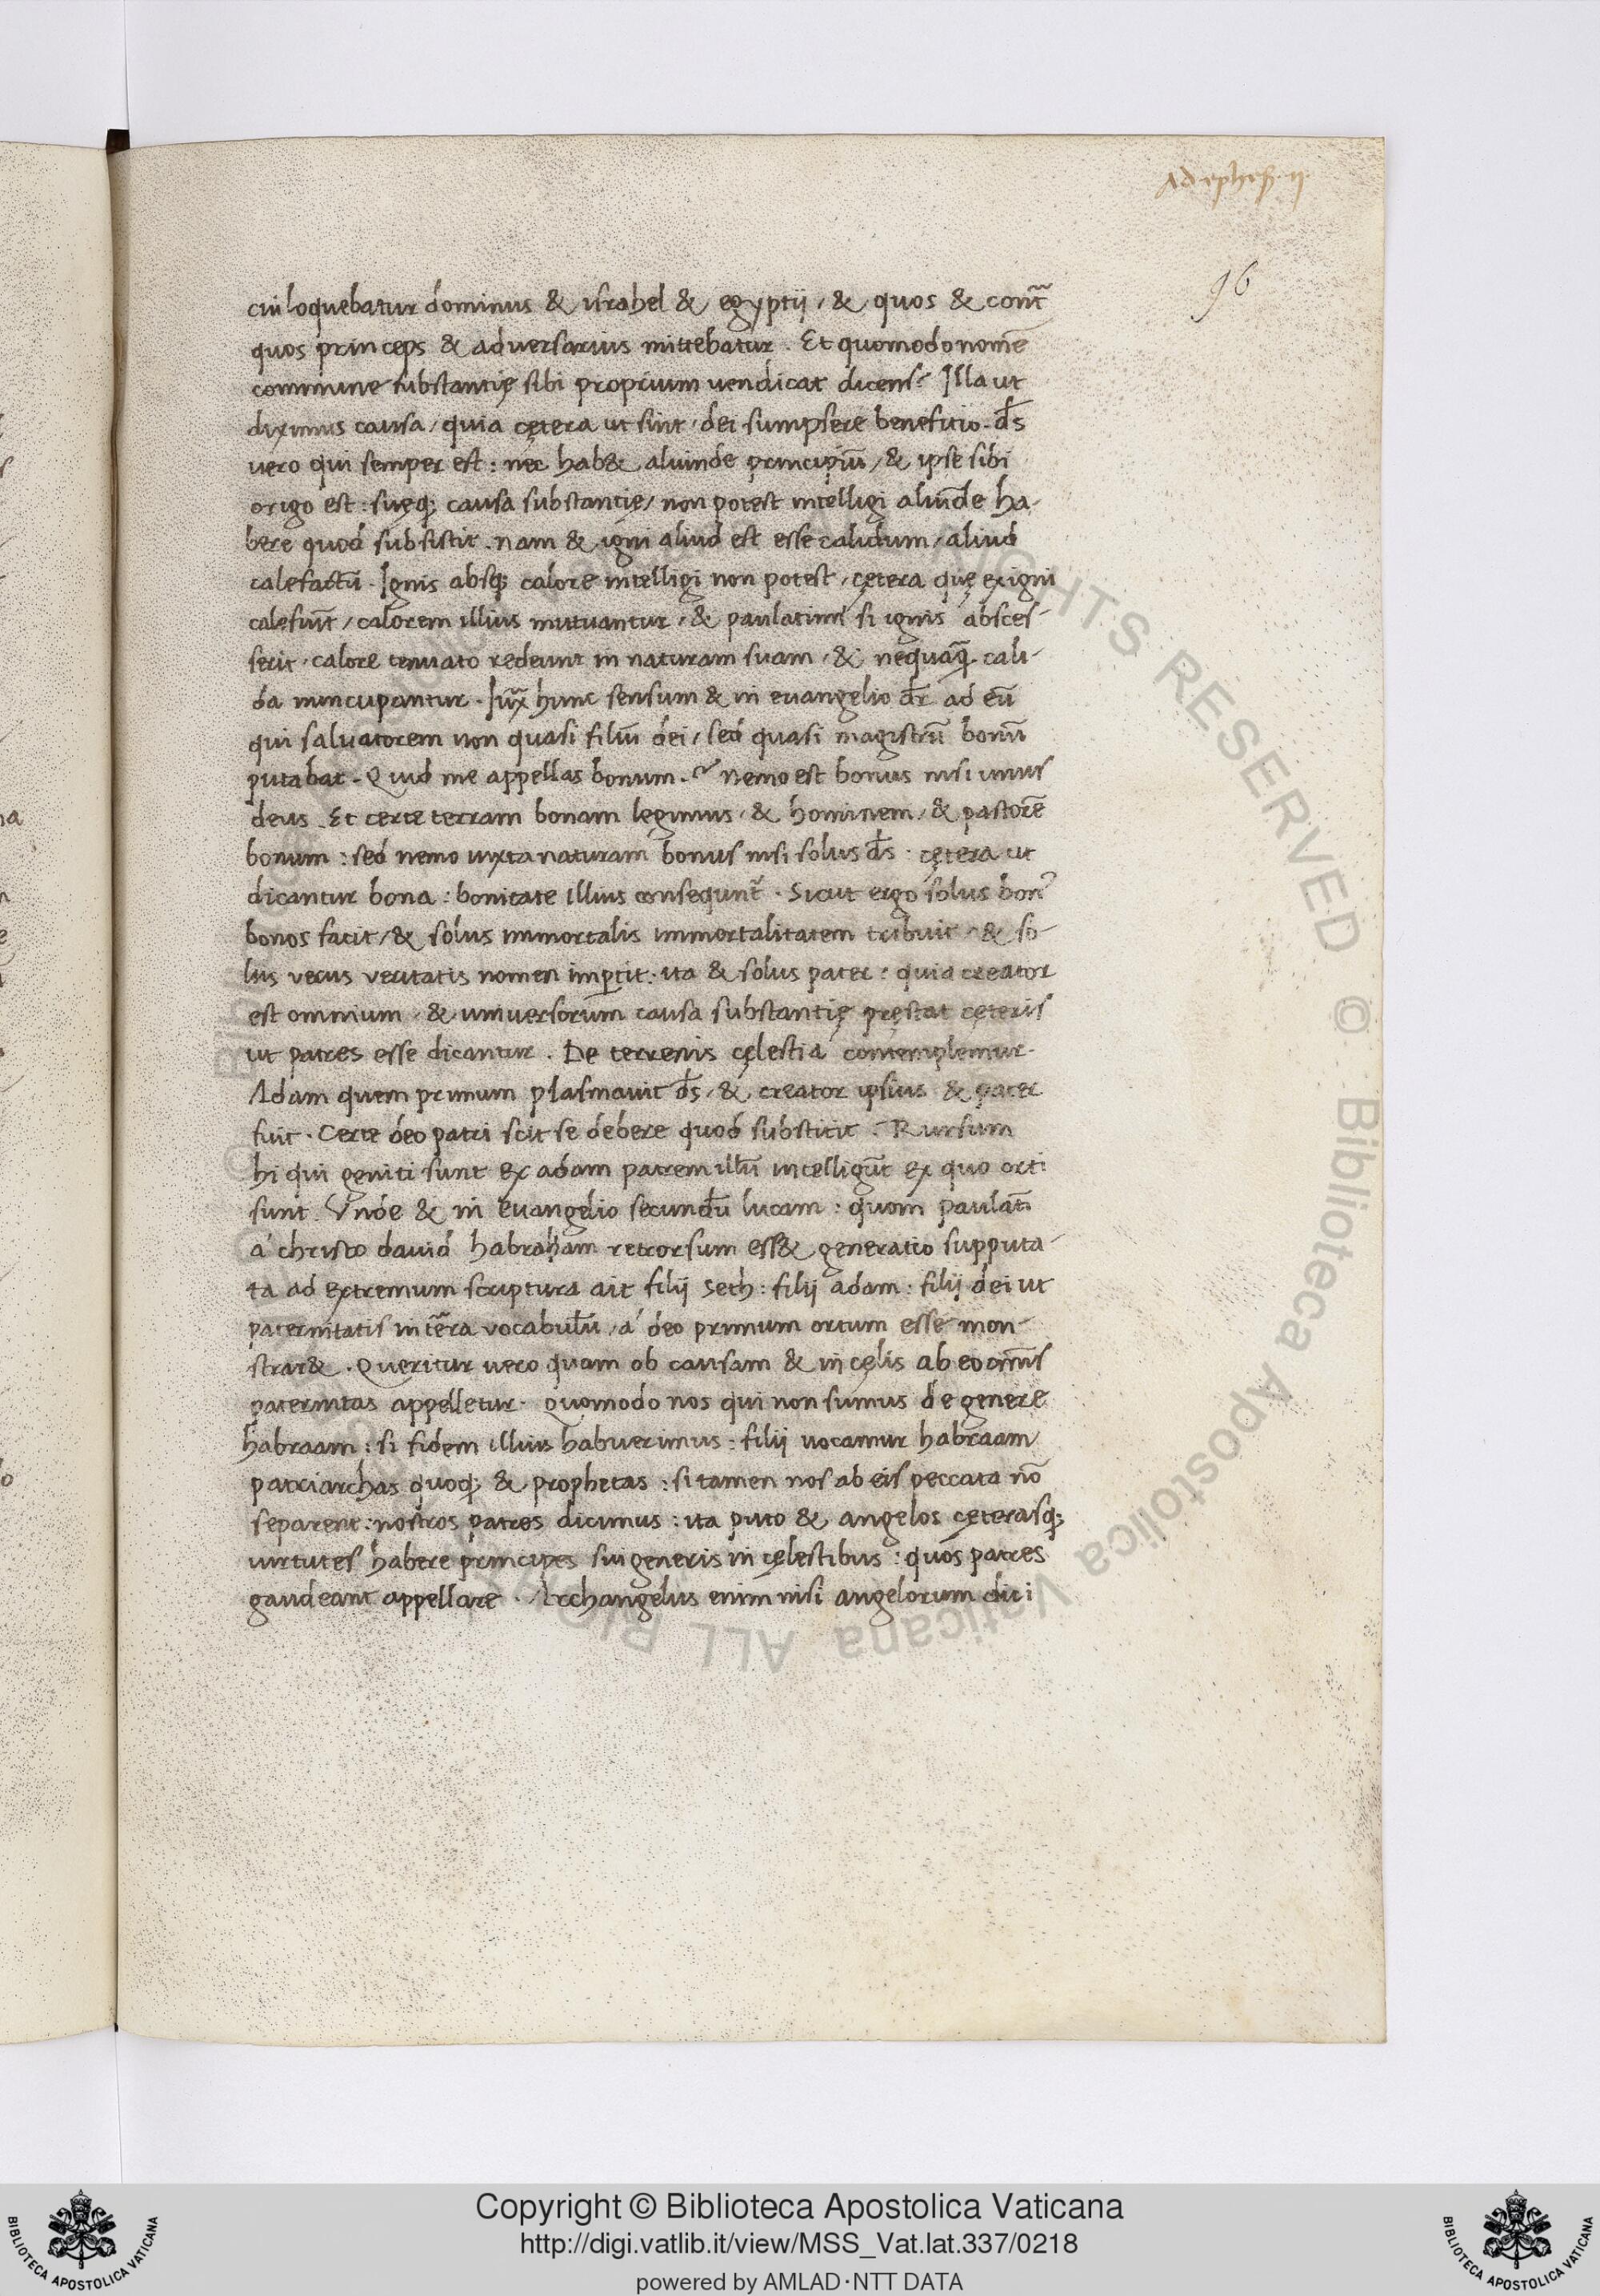 Ad ephes. ii.
96
cui loquebatur dominus & israhel & egyptij, & quos & contͣ
quos princeps & adversarius mittebatur. Et quomodo nomē
commune substantię sibi proprium vendicat dicens? Illa ut
diximus causa, quia cętera ut sint, dei sumpsere beneficio. d̄s
vero qui semper est: nec hab& aliunde principiū, & ipse sibi
origo est: suęq; causa substantię, non potest intelligi aliūde ha-
bere quod subsistit. nam & igni aliud est esse calidum, aliud
calefactū. Ignis absq; calore intelligi non potest, cętera quę ex igni
calefiūt, calorem illius mutuantur, & paulatim si ignis absces-
serit, calore tenuato redeunt in naturam suam, & nequaq̄. cali-
da nuncupantur. Iux̄ hunc sensum & in evangelio dr̄ ad eū
qui salvatorem non quasi filiū dei, sed quasi magistrū bonū
putabat. Quid me appellas bonum.? nemo est bonus nisi unus
deus. Et certe terram bonam legimus, & hominem, & pastorē
bonum: sed nemo iuxta naturam bonus nisi solus d̄s. cętera ut
dicantur bona: bonitate illius consequnt̄. Sicut ergo solus bon᾽
bonos facit, & solus immortalis immortalitatem tribuit, & so-
lus verus veritatis nomen imp̱tit. ita & solus pater: quia creator
est omnium, & universorum causa substantię pręstat cęteris
ut patres esse dicantur. De terrenis cęlestia contemplemur.
Adam quem primum plasmavit d̄s, & creator ipsius & pater
fuit. Certe deo patri scit se debere quod substitit. Rursum
hi qui geniti sunt ex adam patrem illū intelligūt ex quo orti
sunt. Unde & in evangelio secundū lucam: quom paulatī
á christo david habraham retrorsum ess& generatio supputa-
ta ad extremum scriptura ait filij seth: filij adam: filij dei ut
paternitatis in tēra vocabulū, á deo primum ortum esse mon-
strar&. Queritur vero quam ob causam & in cęlis ab eo omīs
paternitas appelletur. Quomodo nos qui non sumus de genere
habraam: si fidem illius habuerimus: filij vocamur habraam
patriarchas quoq; & prophetas: si tamen nos ab eis peccata nō
separent: nostros patres dicimus: ita puto & angelos cęterasq;
virtutes habere principes sui generis in cęlestibus: quos patres
gaudeant appellare. Archangelus enim nisi angelorum dici
© Biblioteca Apostolica Vaticana ALL RIGHTS RESERVED © Biblioteca Apostolica Vaticana ALL RIGHTS RESERVED
Copyright © Biblioteca Apostolica Vaticana
http://digi.vatlib.it/view/MSS_Vat.lat.337/0218
powered by AMLAD·NTT DATA
BIBLIOTECA APOSTOLICA VATICANA
BIBLIOTECA APOSTOLICA VATICANA